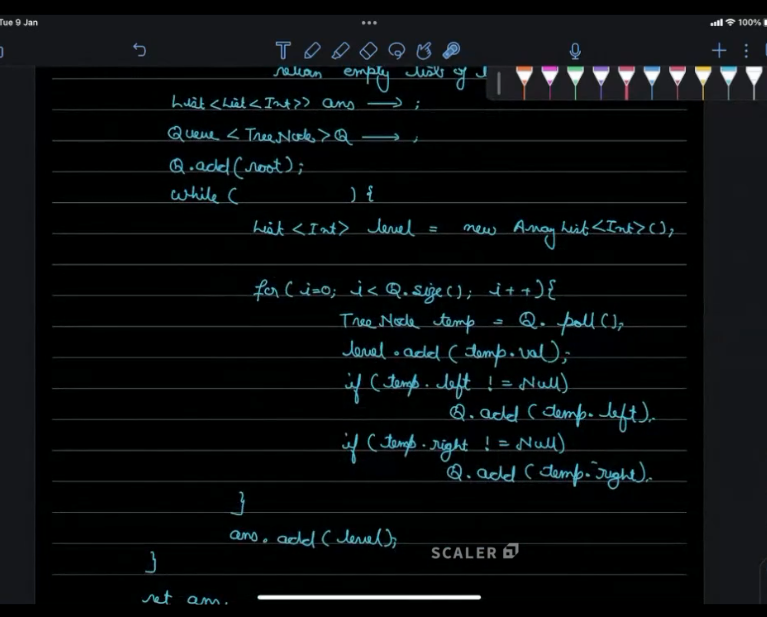 Tue 9 Jan
100%
return empty list of
List<List<Int>> ans → ;
Queue <TreeNode> Q → ,
Q.add(root);
while ( ) {
List <Int> level = new ArrayList<Int>();
for ( i=0; i< Q.size(); i++){
TreeNode temp = Q. poll();
level.add (temp.val);
if (temp. left != Null)
Q. add (temp. left).
if (temp. right != Null)
Q. add (temp. right).
}
ans. add (level);
SCALER
}
ret ans.